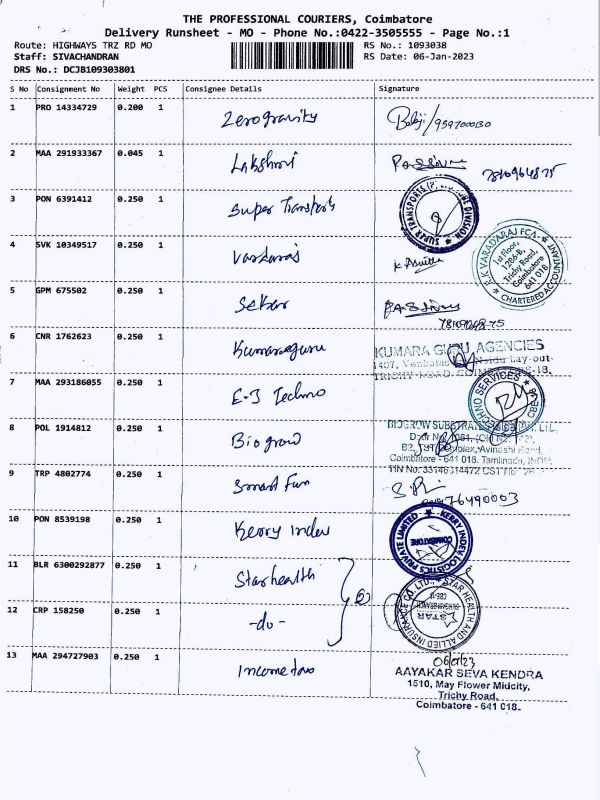 THE PROFESSIONAL COURIERS, Coimbatore
Delivery Runsheet - MO - Phone No.:0422-3505555 - Page No.:1
Route: HIGHWAYS TRZ RD MO
RS No.: 1093038
Staff: SIVACHANDRAN
RS Date: 06-Jan-2023
DRS No.: DCJB109303801
S No Consignment No Weight PCS Consignee Details Signature
1 PRO 14334729 0.200 1 Zerogravity Balaji/
2 MAA 291933367 0.045 1 Lakshmi
3 PON 6391412 0.250 1 Super Transports
SUPER TRANSPORTS (P) DIVISION
4 SVK 10349517 0.250 1
R.K VARADARAJ FCA
1st Floor,
1286-B,
Trichy Road,
Coimbatore
641 018
CHARTERED ACCOUNTANT
5 GPM 675502 0.250 1 Sekar
6 CNR 1762623 0.250 1 Kumaraguru
KUMARA GURU AGENCIES
1407, Lay-out
TRICHY ROAD,
7 MAA 293186055 0.250 1 E-3 Techno
TECHNO SERVICES CBE-18
8 POL 1914812 0.250 1 Biogrow
BIOGROW SUBSTRATE
Avinashi Road,
Coimbatore - 641 018. Tamilnadu,
TIN No: 33146314472 CST No
9 TRP 4802774 0.250 1 Smart Fun
10 PON 8539198 0.250 1 Kerry Indev
KERRY INDEV LOGISTICS PRIVATE LIMITED
COIMBATORE
11 BLR 6300292877 0.250 1 Starhealth
12 CRP 158250 0.250 1 -do-
STAR HEALTH AND ALLIED INSURANCE CO. LTD.,
STAR
13 MAA 294727903 0.250 1 Incometax
AAYAKAR SEVA KENDRA
1510, May Flower Midcity,
Trichy Road,
Coimbatore - 641 018.